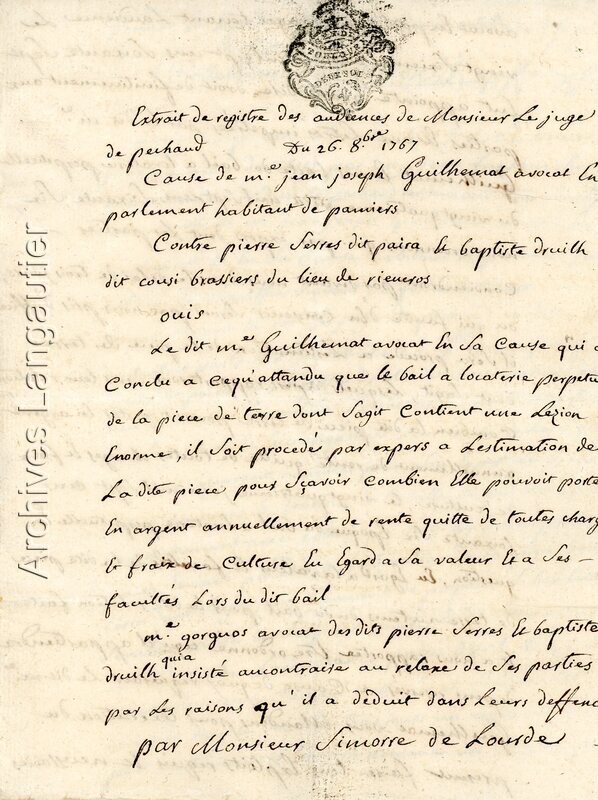 Extrait de registre des audiences de Monsieur Le juge
de pechaud Du 26. 8bre 1767
Cause de m.e jean joseph Guilhemat avocat En
parlement habitant de pamiers
Contre pierre Serres dit paira Et baptiste druilh
dit cousi brassiers du lieu de rieucros
ouis
Le dit m.e Guilhemat avocat En Sa Cause qui a
Conclu a cequ'attandu que le bail a locaterie perpetu
de la piece de terre dont Sagit Contient une Lezion
Enorme, il Soit procedé par expers a Lestimation de
La dite piece pour Sçavoir Combien Elle pouvoit porte
En argent annuellement de rente quitte de toutes charg
Et fraix de Culture Eu Egard a Sa valeur Et a Ses -
facultés Lors du dit bail
m.e gorguos avocat des dits pierre Serres Et baptiste
druilh qui a insisté aucontraire au relaxe de Ses parties
par Les raisons qu'il a deduit dans Leurs deffenc
par Monsieur Simorre de Lourde
Archives Langautier